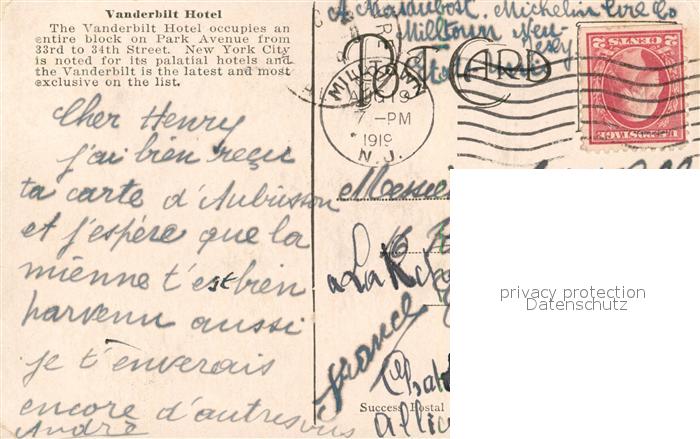 Vanderbilt Hotel
The Vanderbilt Hotel occupies an
entire block on Park Avenue from
33rd to 34th Street. New York City
is noted for its palatial hotels and
the Vanderbilt is the latest and most
exclusive on the list.
Cher Henry
j'ai bien reçu
ta carte d'Aubusson
et j'espère que la
mienne t'est bien
parvenu aussi
je t'enverais
encore d'autres vues
André
Michelin Tire Co
Milltown New-
Jersey
POST CARD
MILLTOWN
AUG 19
7-PM
1919
N. J.
2 CENTS 2
U.S. POSTAGE
Messieu
a La
france
Success Postal
privacy protection
Datenschutz